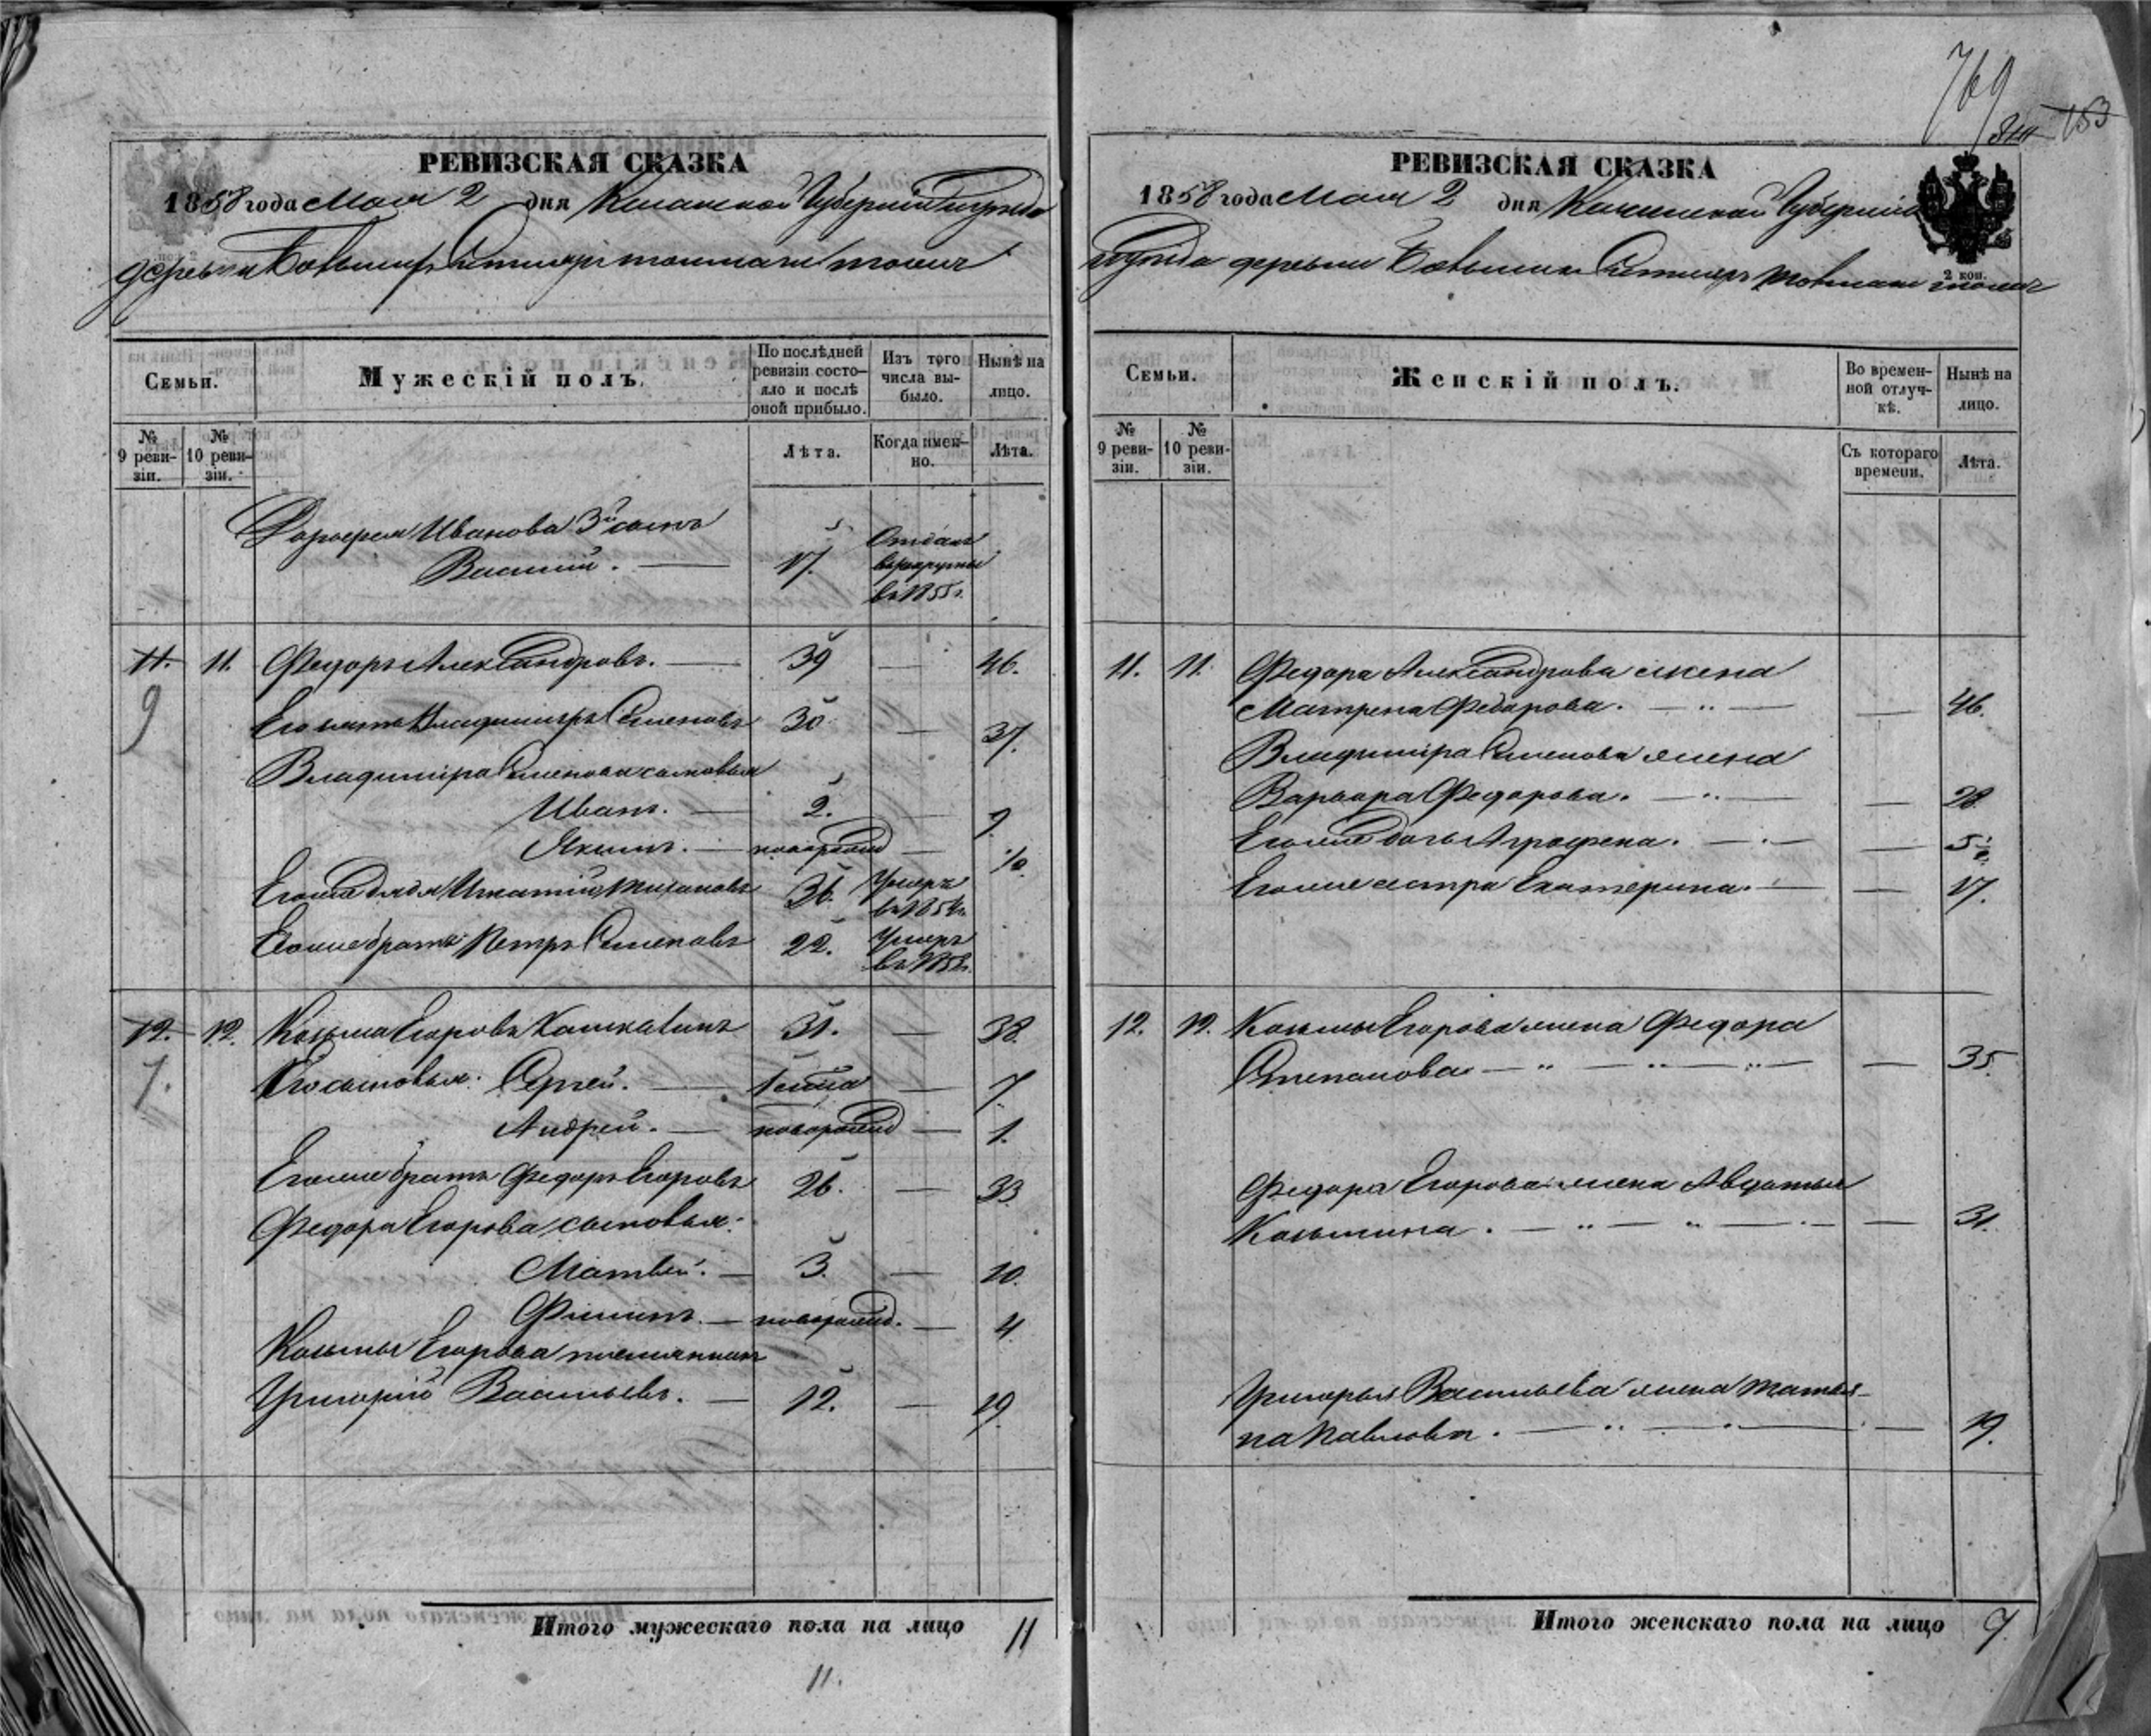 769
153
РЕВИЗСКАЯ СКАЗКА
1858 года Мая 2 дня Казанской Губернии
деревни
Семьи.
Мужескій полъ.
По послѣдней ревизіи состояло и послѣ оной прибыло.
Изъ того числа выбыло.
Нынѣ на лицо.
№ 9 ревизіи.
№ 10 ревизіи.
Лѣта.
Когда именно.
Лѣта.
Иванова 3й сынъ
Василій. 17. Отданъ в рекруты в 1855 г.
11. 11. Федоръ Александровъ. 39 — 46.
9
Его зять Владимиръ Семеновъ 30 — 37.
Владимира Семенова сыновья
Иванъ. 2. — 9.
Якимъ. новорожд —
Его же дядя Игнатій 36. Умеръ в 1854 г.
Его же братъ Петръ Семеновъ 22. Умеръ
12. 12. Козьма Егоровъ 31. — 38.
7.
Его сыновья: Сергей. — 7.
Андрей. новорожд — 1.
Его же братъ Федоръ Егоровъ 26. — 33.
Федора Егорова сыновья:
Матвей. 3. — 10.
Филипъ. новорожд. — 4.
Козьмы Егорова племянникъ
Григорій Васильевъ. 12. — 19.
Итого мужескаго пола на лицо 11
11.
РЕВИЗСКАЯ СКАЗКА
1858 года Мая 2 дня Казанской Губерніи
2 коп.
уѣзда деревни
Семьи.
Женскій полъ.
Во временной отлучкѣ.
Нынѣ на лицо.
№ 9 ревизіи.
№ 10 ревизіи.
Съ котораго времени.
Лѣта.
11. 11. Федора Александрова жена
Матрена Федорова. — 46.
Владимира Семенова жена
Варвара Федорова. — 28.
Его же дочь Аграфена. —
Его же сестра Екатерина. — 17.
12. 12. Козьмы Егорова жена Федора
Степанова — 35.
Федора Егорова жена Авдотья
Козьмина. — 31.
Григорья Васильева жена Татья-
на Павлова. — 19.
Итого женскаго пола на лицо 7.